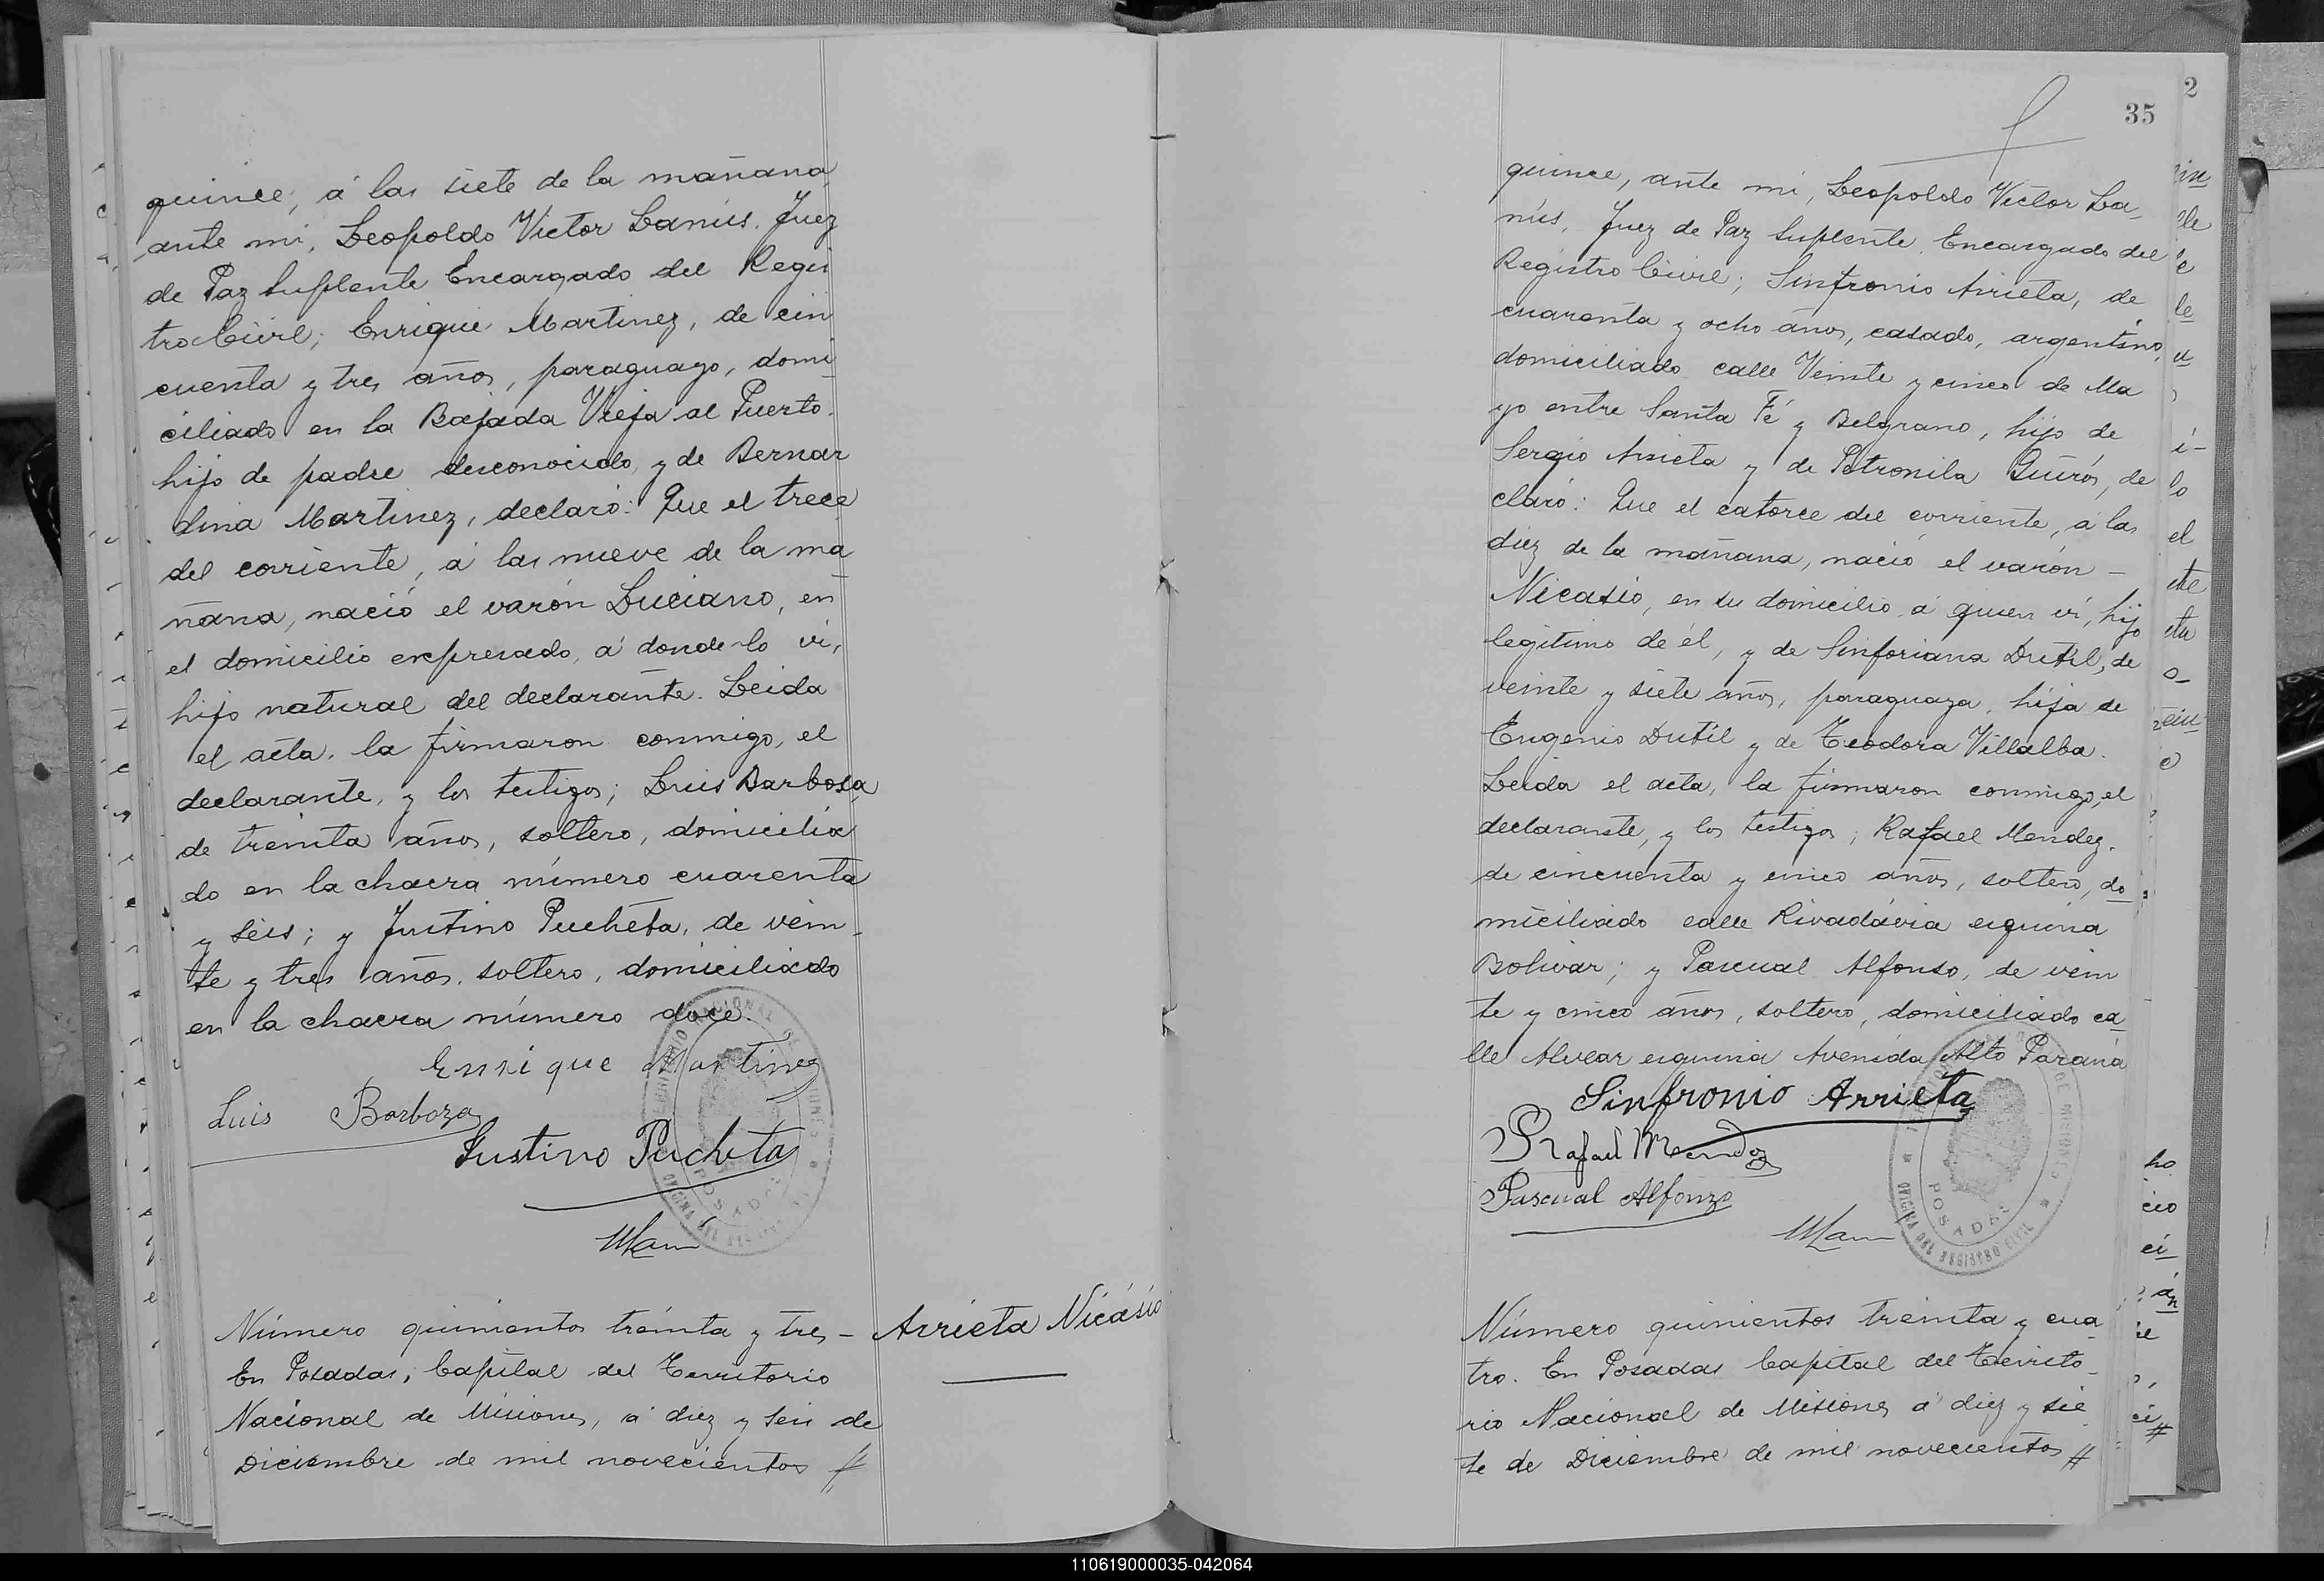 quince, á las siete de la mañana
ante mí, Leopoldo Victor Lanús. Juez
de Paz Suplente Encargado del Regis
tro Civil; Enrique Martinez, de cin
cuenta y tres años, paraguayo, domi
ciliado en la Bajada Vieja al Puerto.
hijo de padre desconocido, y de Bernar
dina Martinez, declaró: Que el trece
del corriente, á las nueve de la ma
ñana, nació el varón Luciano, en
el domicilio expresado, á donde lo ví,
hijo natural del declarante. Leida
el acta, la firmaron conmigo, el
declarante, y los testigos; Luis Barbosa
de treinta años, soltero, domicilia
do en la chacra número cuarenta
y seis; y Justino Pucheta, de vein
te y tres años, soltero, domiciliado
en la chacra número doce.
Enrique Martinez
Luis Barboza
Justino Pucheta
POSADAS
Número quinientos treinta y tres –
En Posadas, Capital del Territorio
Nacional de Misiones, á diez y seis de
Diciembre de mil novecientos #
Arrieta Nicásio
2
35
quince, ante mí, Leopoldo Victor La
nús, Juez de Paz Suplente, Encargado del
Registro Civil; Sinfronio Arrieta, de
cuarenta y ocho años, casado, argentino,
domiciliado calle Veinte y cinco de Ma
yo entre Santa Fé y Belgrano, hijo de
Sergio Arrieta y de Petronila Quirós, de
claró: Que el catorce del corriente, á las
diez de la mañana, nació el varón –
Nicasio, en su domicilio á quien ví, hijo
legítimo de él, y de Sinforiana Dutil, de
veinte y siete años, paraguaya, hija de
Eugenio Dutil y de Teodora Villalba.
Leida el acta, la firmaron conmigo, el
declarante, y los testigos; Rafael Mendez.
de cincuenta y cinco años, soltero, do
miciliado calle Rivadávia esquina
Bolivar; y Pascual Alfonso, de vein
te y cinco años, soltero, domiciliado ca
lle Alvear esquina Avenida Alto Paraná
Sinfronio Arrieta
Rafael Mendez
Pascual Alfonzo
POSADAS
OFICINA DEL REGISTRO CIVIL
Número quinientos treinta y cua
tro. En Posadas Capital del Territo
rio Nacional de Misiones á diez y sie
te de Diciembre de mil novecientos #
110619000035-042064